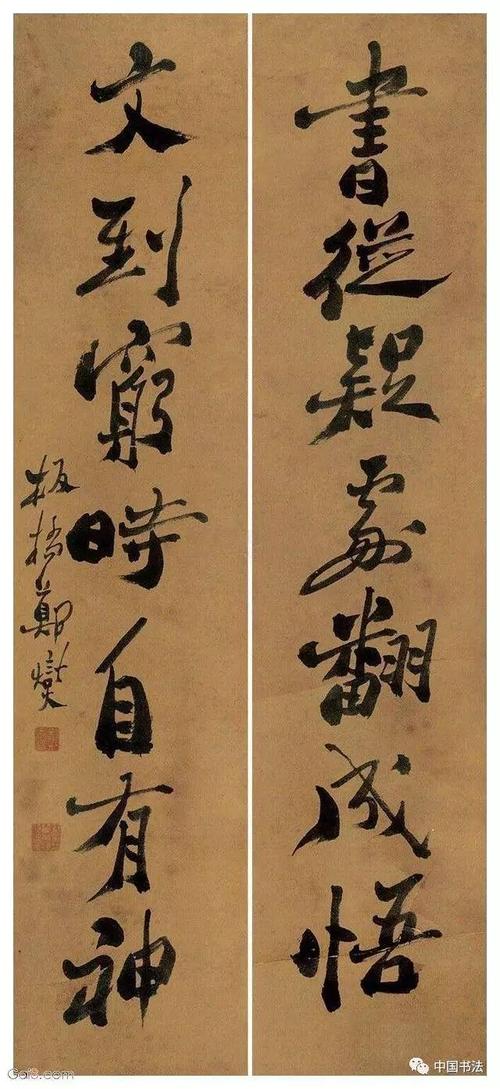 書從疑處翻成悟
文到窮時自有神
板橋鄭燮
中国书法